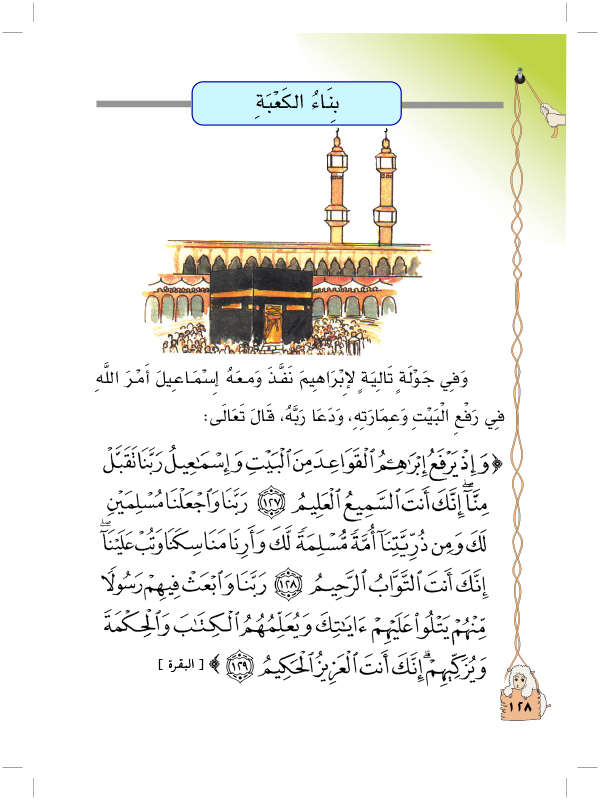 بِنَاءُ الكَعْبَةِ
وَفِي جَوْلَةٍ تَالِيَةٍ لإِبْرَاهِيمَ نَفَّذَ وَمعَهُ إِسْمَاعِيلَ أَمْرَ اللَّهِ
فِي رَفْعِ الْبَيْتِ وَعِمَارَتِهِ، وَدَعَا رَبَّهُ، قَالَ تَعَالَى:
﴿ وَإِذْ يَرْفَعُ إِبْرَٰهِـۧمُ ٱلْقَوَاعِدَ مِنَ ٱلْبَيْتِ وَإِسْمَٰعِيلُ رَبَّنَا تَقَبَّلْ
مِنَّآ ۖ إِنَّكَ أَنتَ ٱلسَّمِيعُ ٱلْعَلِيمُ ١٢٧ رَبَّنَا وَٱجْعَلْنَا مُسْلِمَيْنِ
لَكَ وَمِن ذُرِّيَّتِنَآ أُمَّةً مُّسْلِمَةً لَّكَ وَأَرِنَا مَنَاسِكَنَا وَتُبْ عَلَيْنَآ ۖ
إِنَّكَ أَنتَ ٱلتَّوَّابُ ٱلرَّحِيمُ ١٢٨ رَبَّنَا وَٱبْعَثْ فِيهِمْ رَسُولًا
مِّنْهُمْ يَتْلُوا۟ عَلَيْهِمْ ءَايَٰتِكَ وَيُعَلِّمُهُمُ ٱلْكِتَٰبَ وَٱلْحِكْمَةَ
وَيُزَكِّيهِمْ ۚ إِنَّكَ أَنتَ ٱلْعَزِيزُ ٱلْحَكِيمُ ١٢٩ ﴾ [ البقرة ]
١٢٨